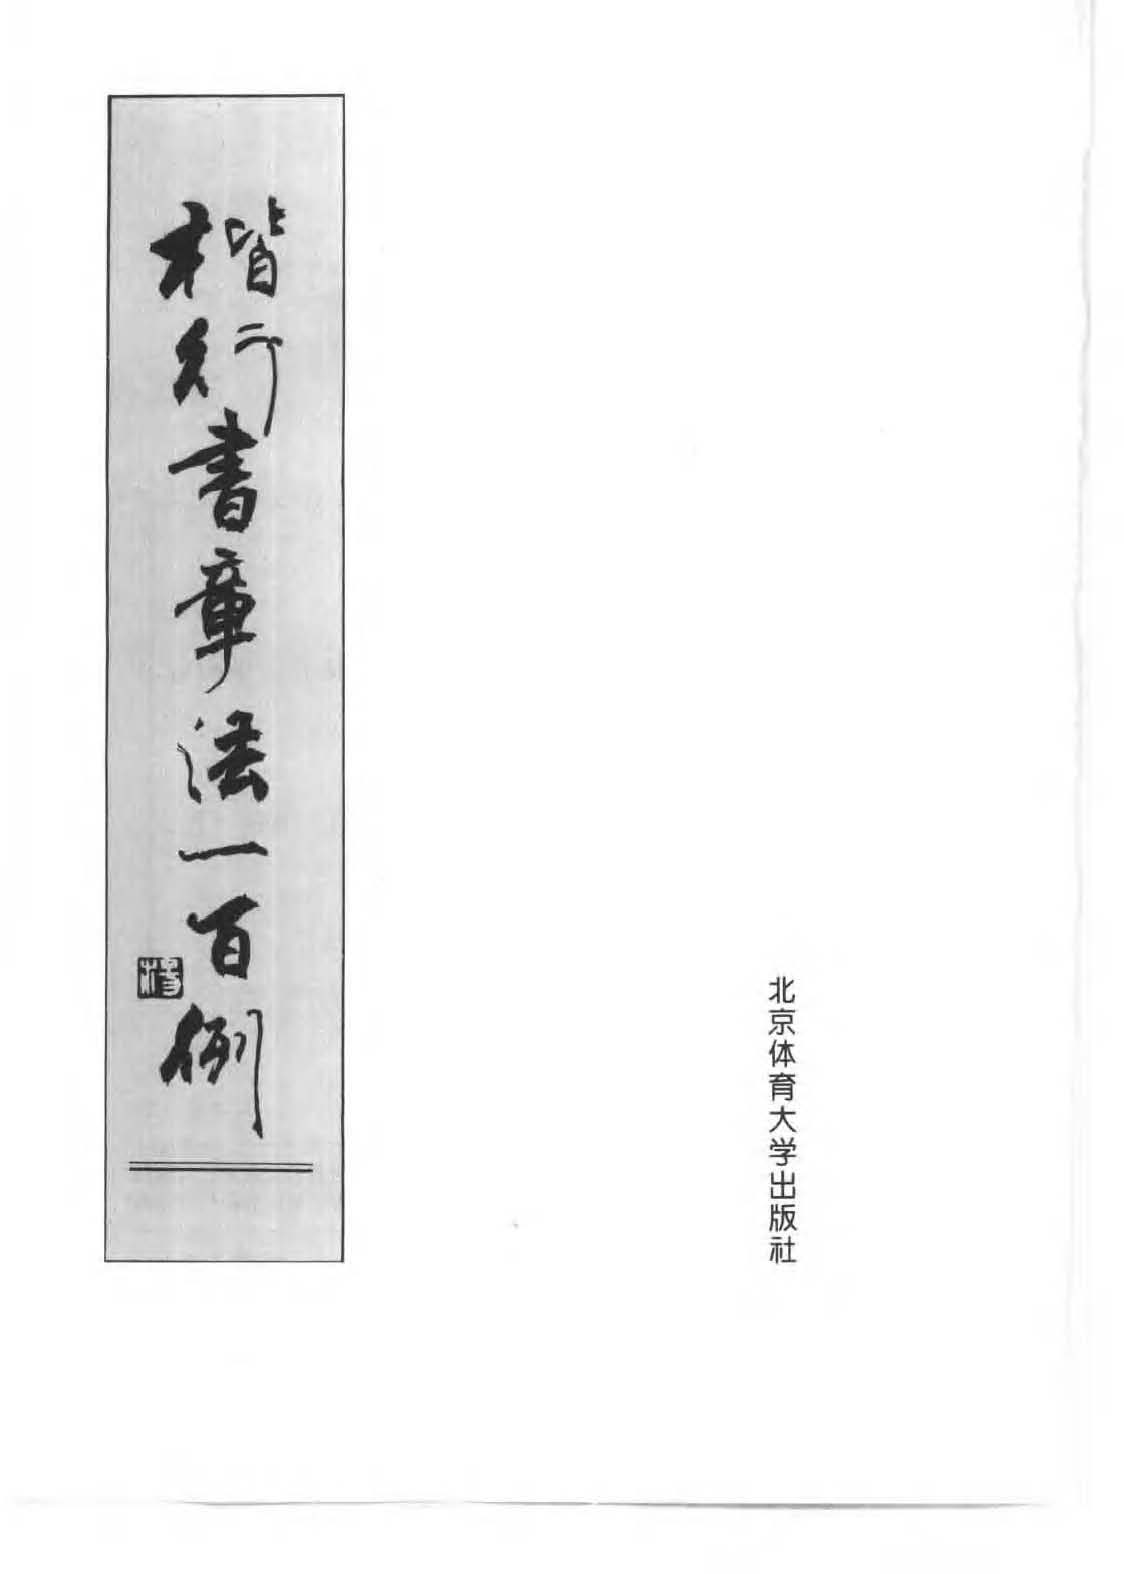 楷行書章法一百例
北京体育大学出版社